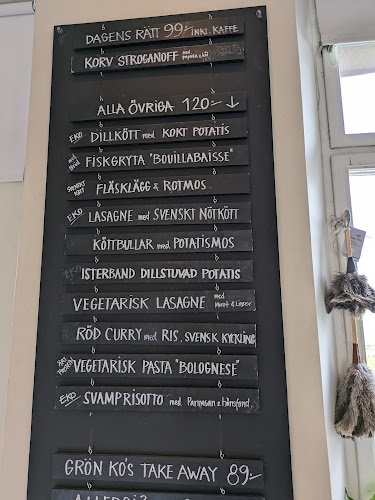 DAGENS RÄTT 99:- INKL. KAFFE
KORV STROGANOFF med paprika & kål
ALLA ÖVRIGA 120:- ↓
EKO DILLKÖTT med KOKT POTATIS
FISKGRYTA "BOUILLABAISSE"
FLÄSKLÄGG & ROTMOS
EKO LASAGNE med SVENSKT NÖTKÖTT
KÖTTBULLAR med POTATISMOS
ISTERBAND DILLSTUVAD POTATIS
VEGETARISK LASAGNE med Morot & Linser
RÖD CURRY med RIS, SVENSK KYCKLING
VEGETARISK PASTA "BOLOGNESE"
EKO SVAMPRISOTTO med Parmesan &
GRÖN KO'S TAKE AWAY 89:-